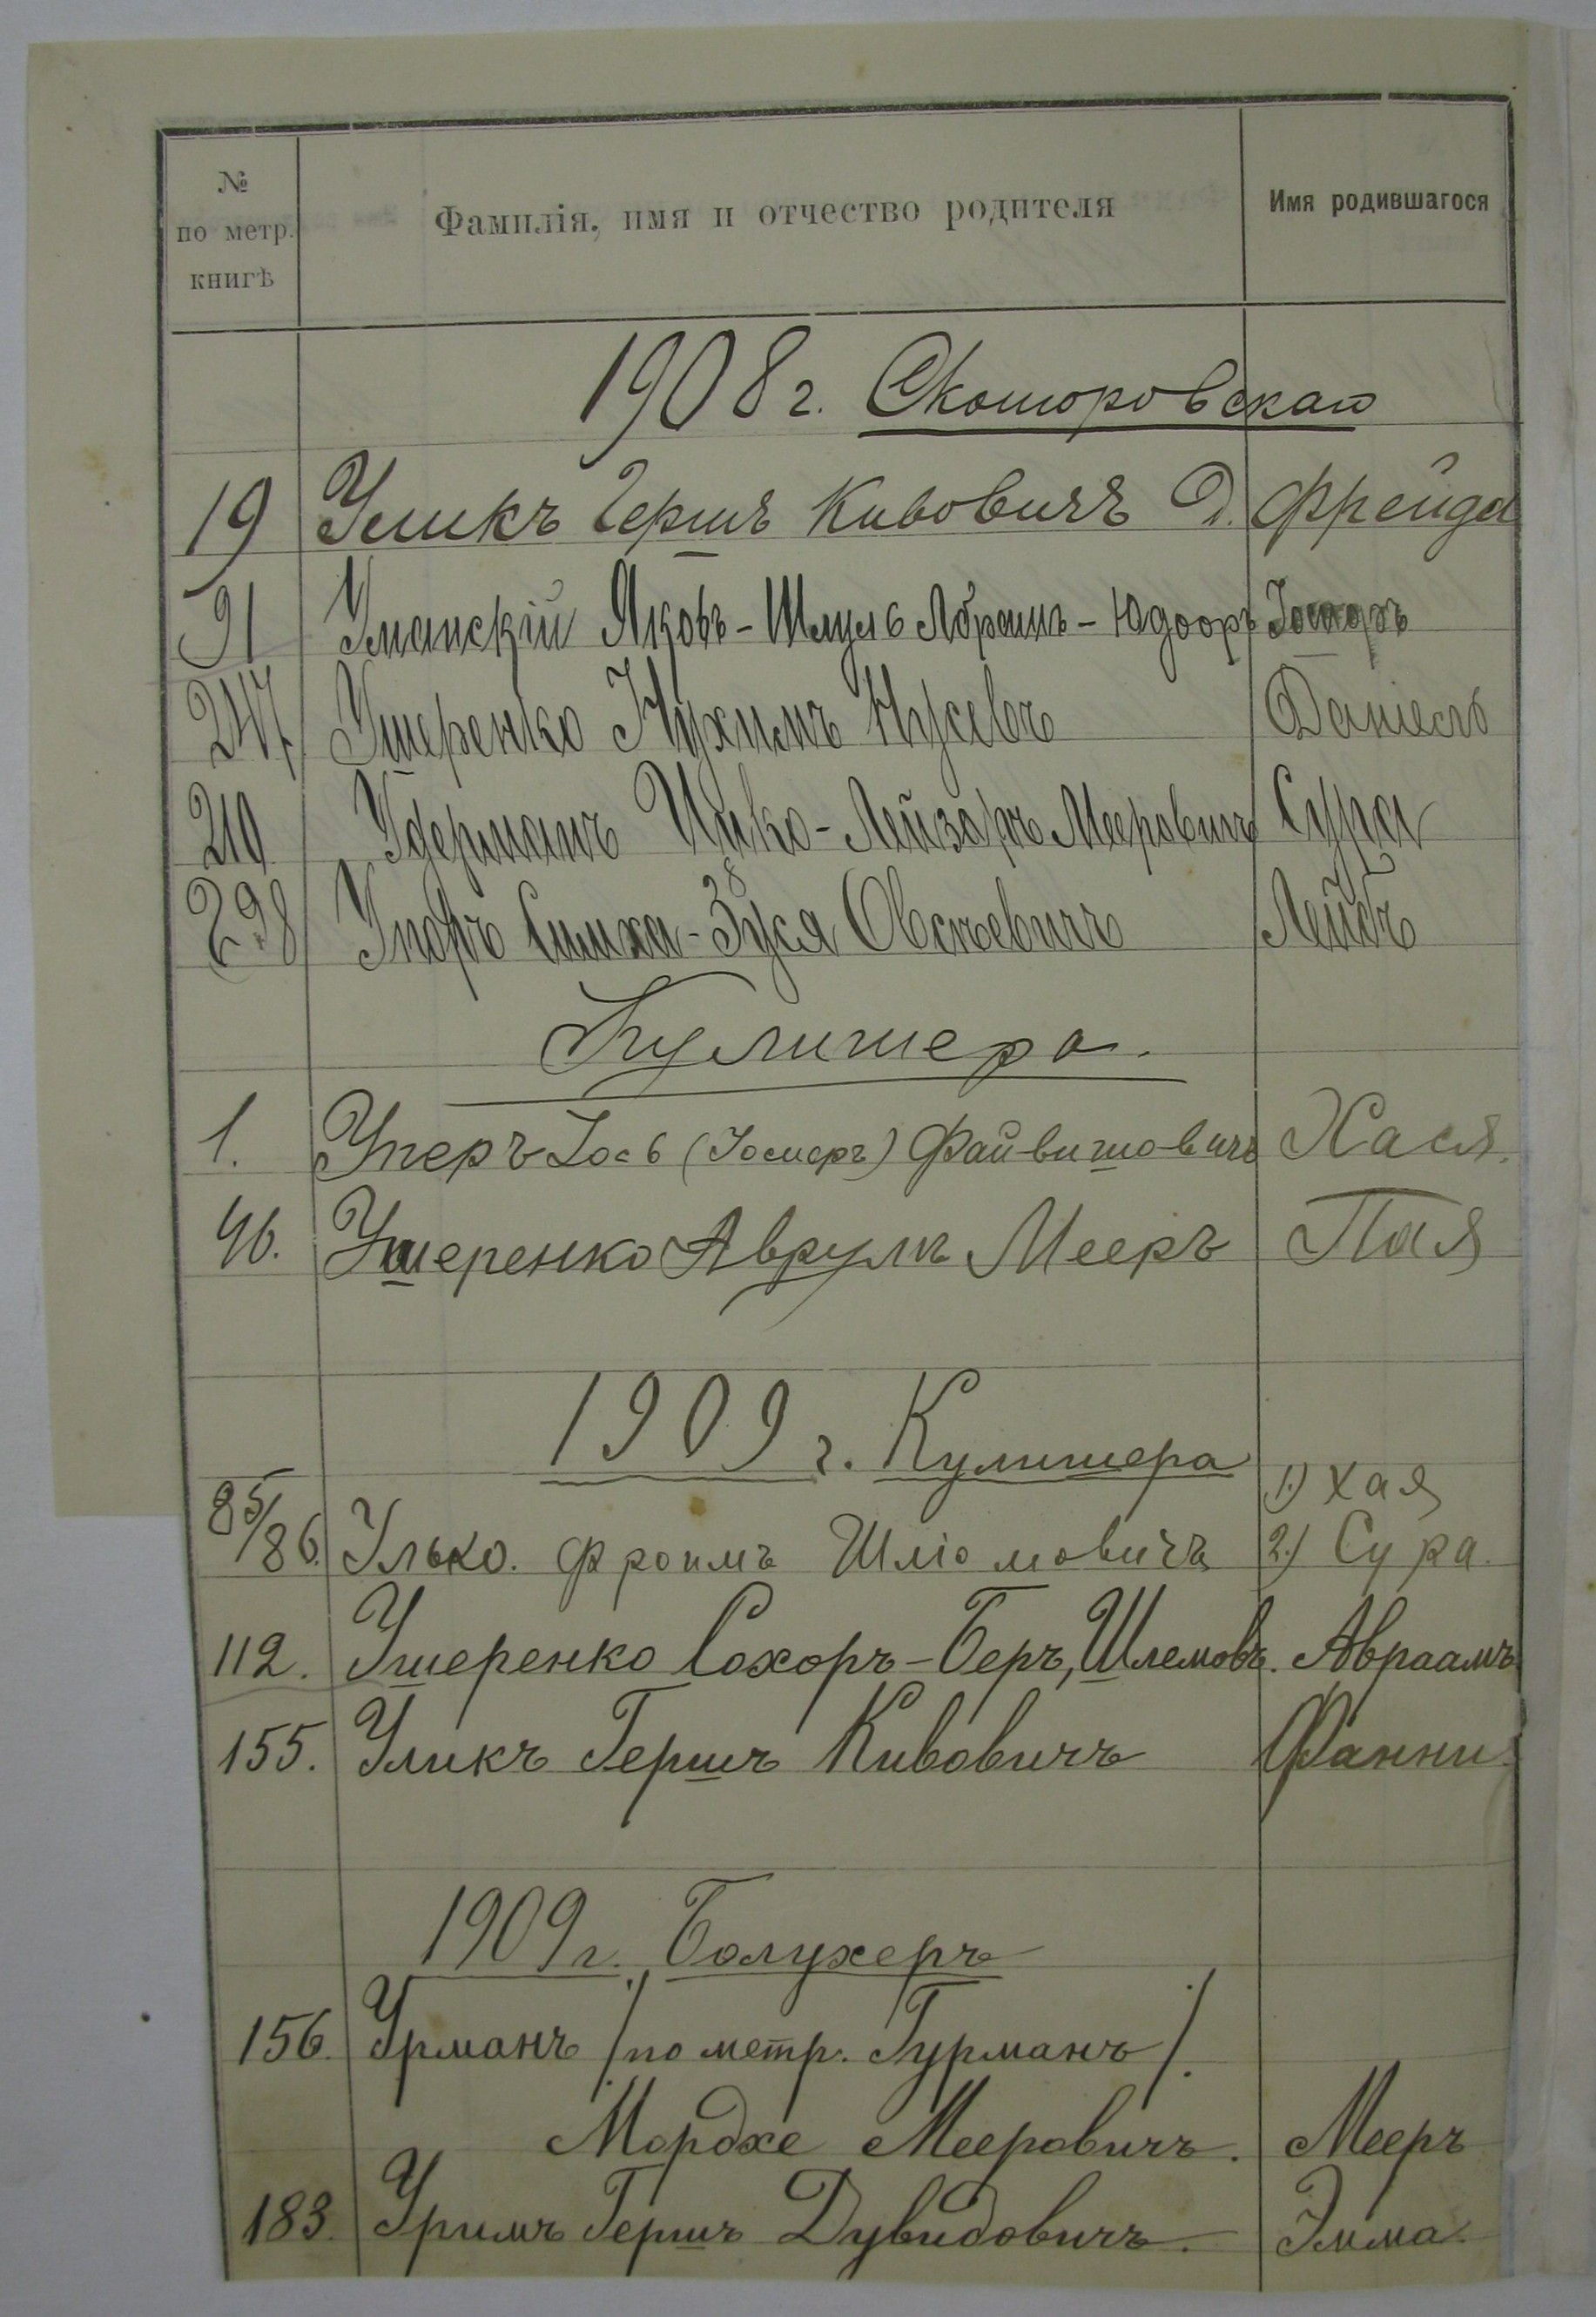 № по метр. книгѣ
Фамилія, имя и отчество родителя
Имя родившагося
1908 г. Скоморовская
19 Уликъ Гершъ Кивовичъ Д. Фрейда
91 Уманскій Яковъ-Шмуль Абрамъ-
247. Ушеренко Нухимъ Нусевъ Даніелъ
210 Удерманъ Ицко-Лейзоръ Мееровичъ Сура
298 Симха-Зуся Овсѣевичъ Лейбъ
Кулишера.
1. Уперъ Іось (Іосифъ) Файвишовичъ Хася.
46. Ушеренко Аврумъ Мееръ Пая
1909 г. Кулишера
85/86. Улько. Фроимъ Шліомовичъ 1.) Хая
2.) Сура.
112. Ушеренко Сохоръ-Беръ, Шлемовъ. Авраамъ
155. Уликъ Гершъ Кивовичъ Фанни
1909 г. Болухеръ
156. Урманъ /по метр. Гурманъ/.
Мордхе Мееровичъ. Мееръ
183. Уримъ Гершъ Дувидовичъ. Эмма.